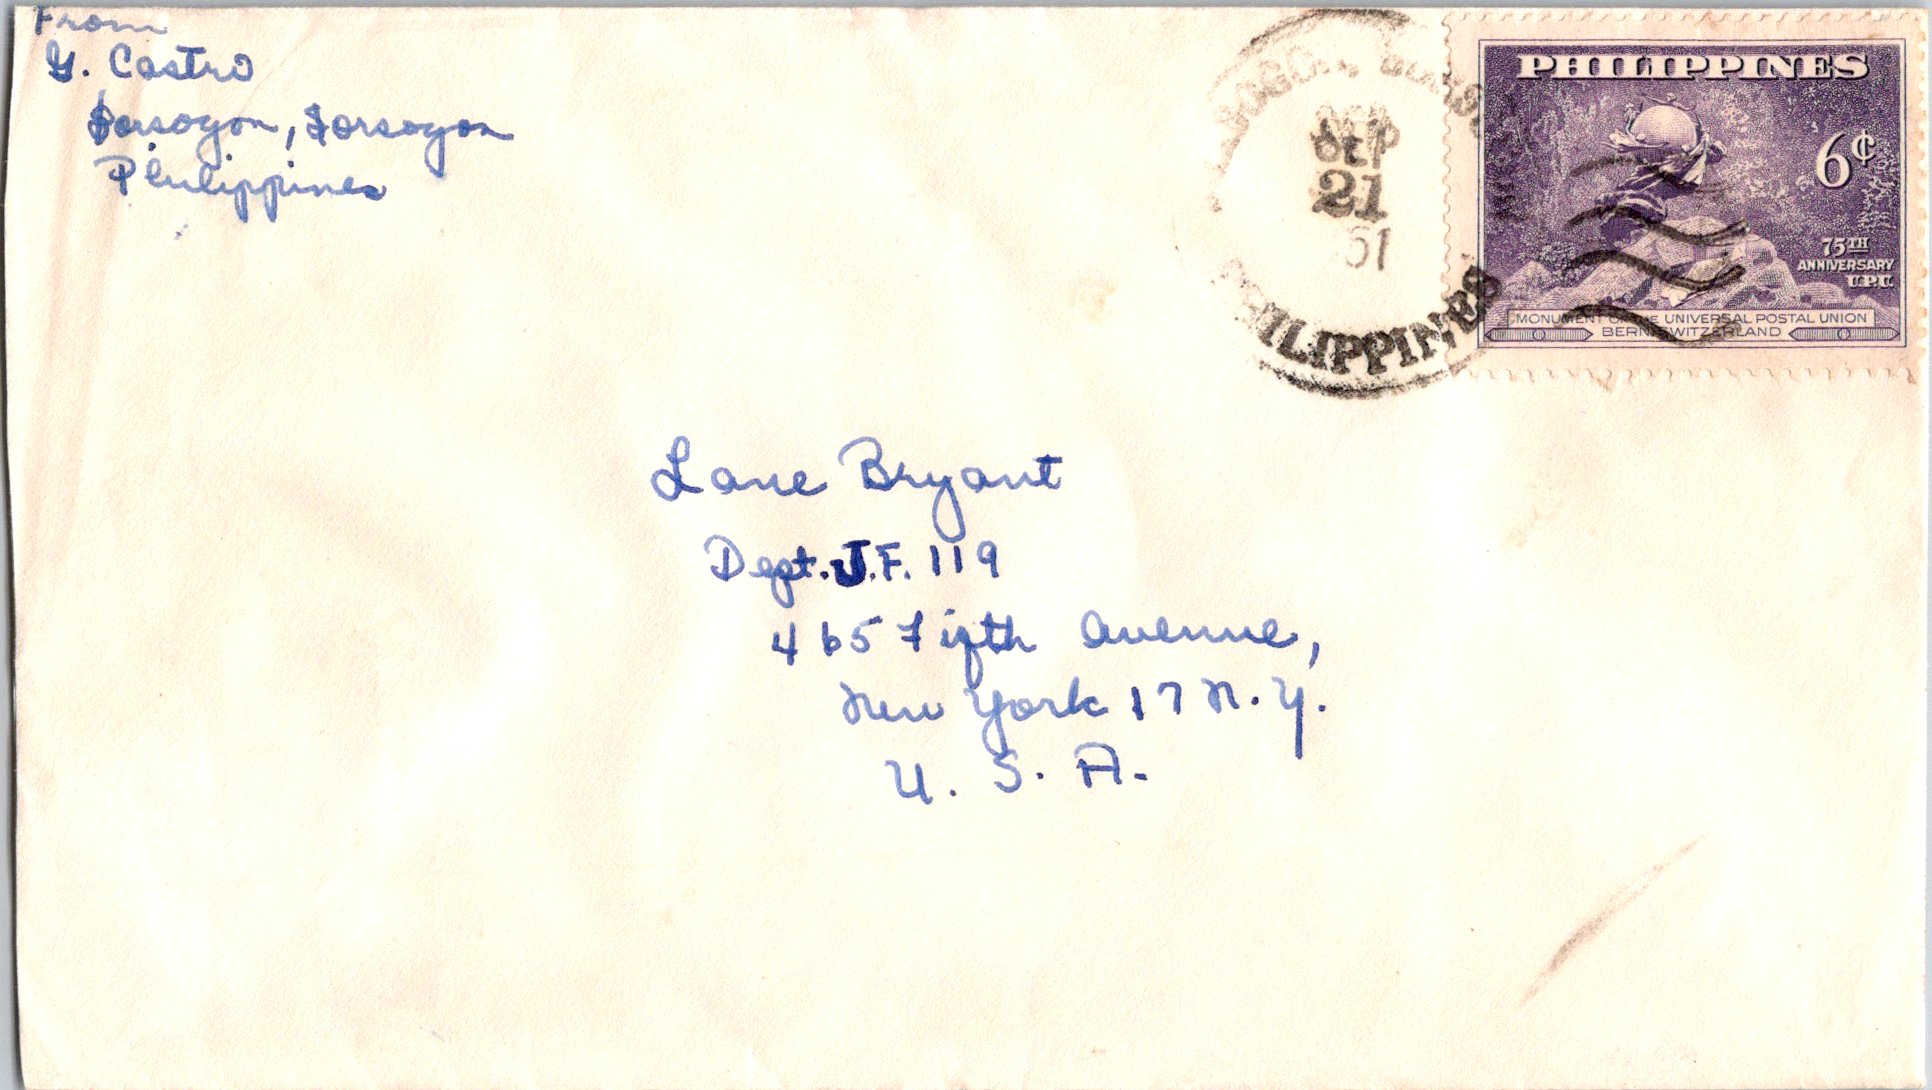 From
G. Castro
Sorsogon, Sorsogon
Philippines
SEP
21
51
PHILIPPINES
PHILIPPINES
6¢
75TH
ANNIVERSARY
U.P.U.
MONUMENT OF THE UNIVERSAL POSTAL UNION
BERN, SWITZERLAND
Lane Bryant
Dept. J.F. 119
465 Fifth Avenue,
New York 17 N.Y.
U. S. A.